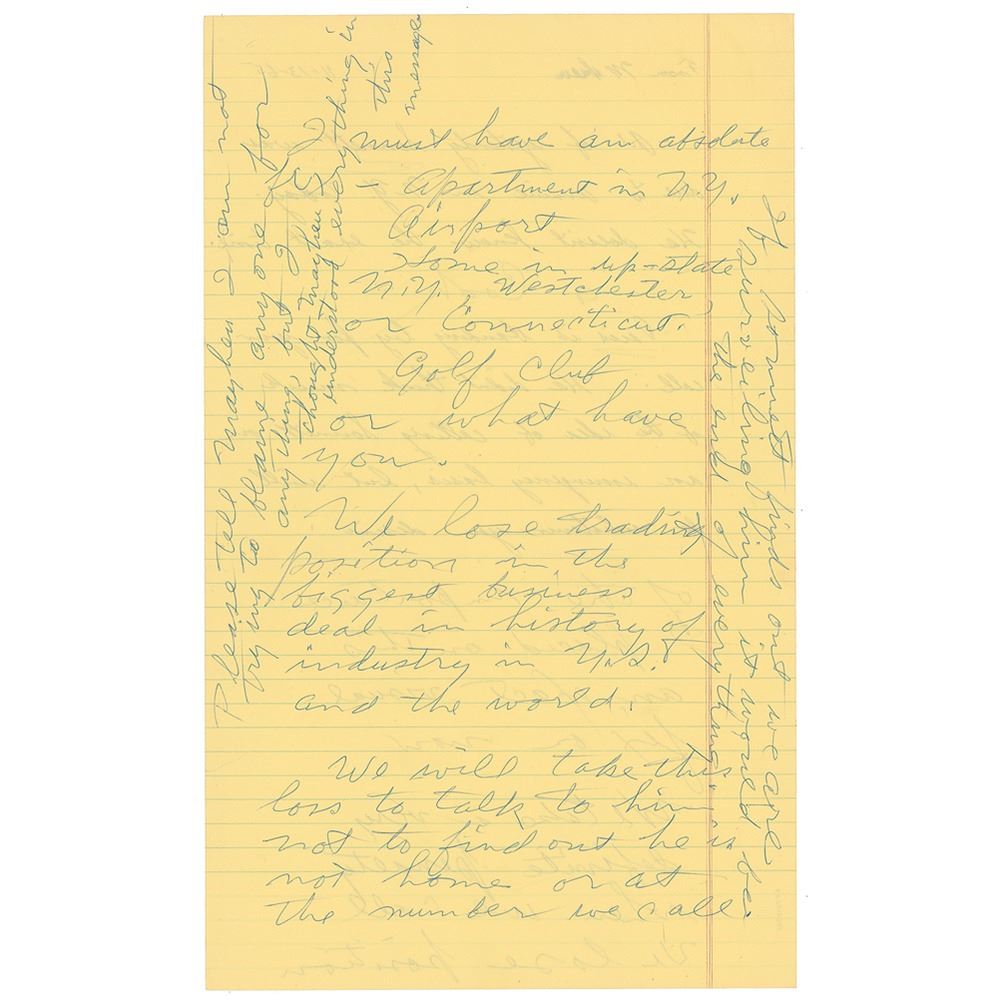 I must have an absolute
- Apartment in N.Y.
Airport
Home in up-state
N.Y., Westchester
or Connecticut.
Golf Club
or what have
you.
We lose trading
position in the
biggest business
deal in history of
industry in U.S.
and the world.
We will take this
loss to talk to him
not to find out he is
not home or at
the number we call.
If finds out we are
surveiling him it would be
the end of everything
Please tell Mayheu I am not
trying to blame any one for
anything, but I
thought Mayheu &
I understood everything in
this
message